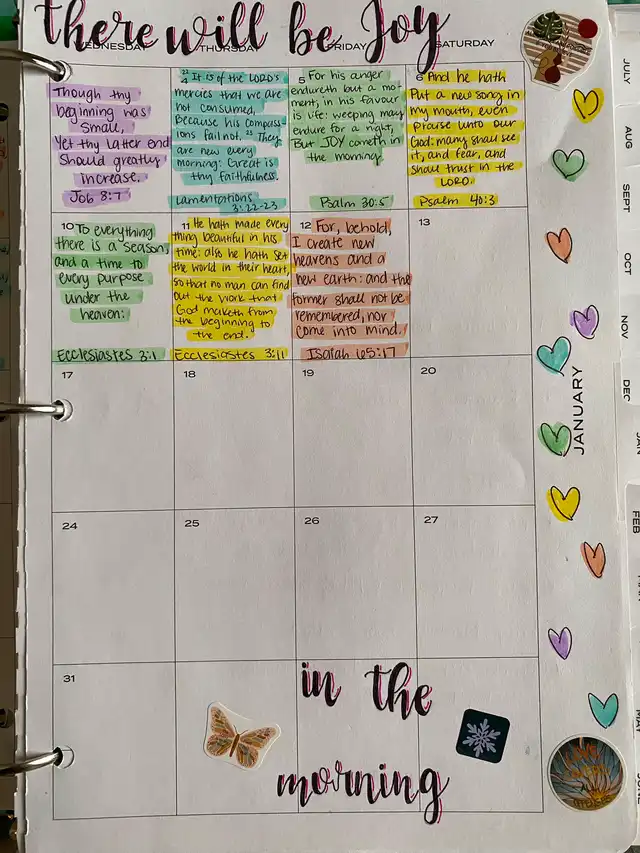 there will be Joy
WEDNESDAY
THURSDAY
FRIDAY
SATURDAY
Though thy
beginning was
small,
Yet thy latter end
should greatly
increase.
Job 8:7
It is of the LORD'S
mercies that we are
not consumed,
Because his compass-
ions fail not. 23 They
are new every
morning: Great is
thy faithfulness.
Lamentations
3:22-23
5 For his anger
endureth but a mo-
ment; in his favour
is life: weeping may
endure for a night,
But JOY cometh in
the morning.
Psalm 30:5
6 And he hath
Put a new song in
my mouth, even
praise unto our
God: many shall see
it, and fear, and
shall trust in the
LORD.
Psalm 40:3
10 To everything
there is a season,
and a time to
every purpose
under the
heaven:
Ecclesiastes 3:1
11 He hath made every
thing beautiful in his
time: also he hath set
the world in their heart,
so that no man can find
out the work that
God maketh from
the beginning to
the end.
Ecclesiastes 3:11
12 For, behold,
I create new
heavens and a
new earth: and the
former shall not be
remembered, nor
come into mind.
Isaiah 65:17
13
17
18
19
20
24
25
26
27
31
in the
morning
JANUARY
JULY
AUG
SEPT
OCT
NOV
DEC
JAN
FEB